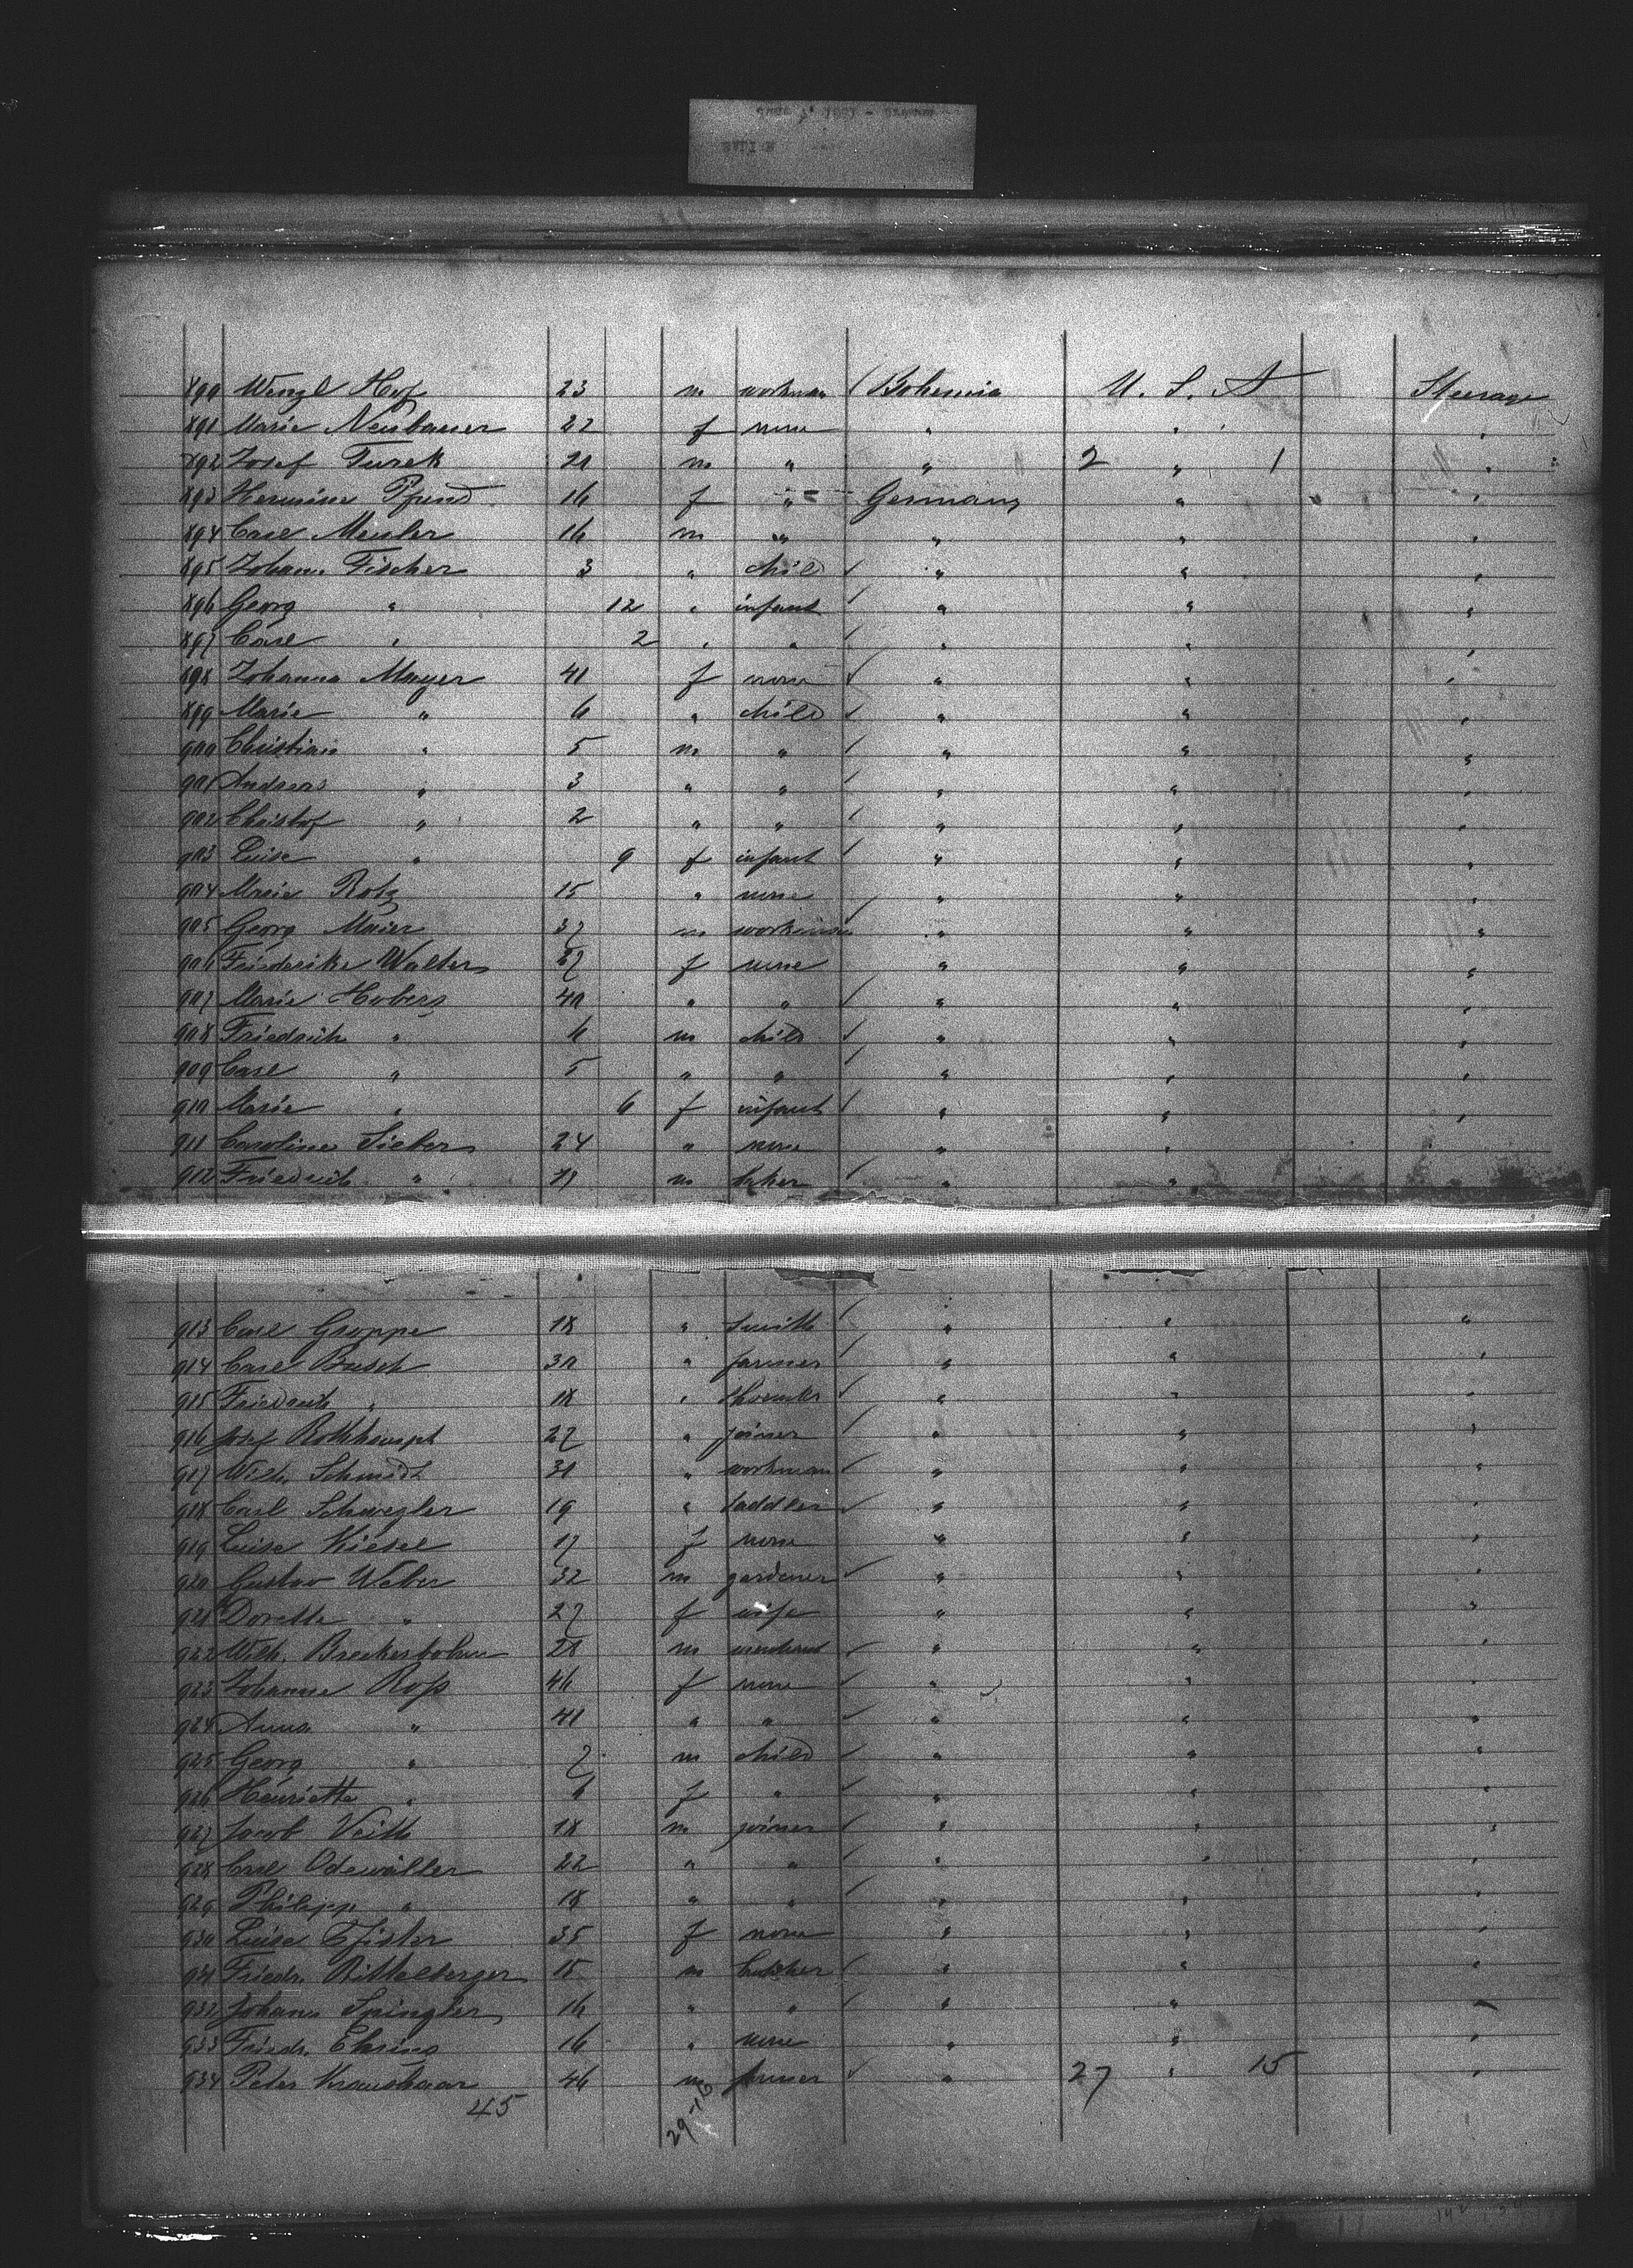 890 Wenzl Hof 23 m workman Bohemia U. S. A Steerage
891 Marie Neubauer 22 f none " " "
892 Josef Turek 20 m " " 2 " 1 "
893 Hermine Pfund 16 f " Germany " "
894 Carl Meisler 16 m " " " "
895 Johann Fischer 3 " child " " "
896 Georg " 12 " infant " " "
897 Carl " 2 " " " " "
898 Johanna Mayer 41 f none " " "
899 Marie " 6 " child " " "
900 Christian " 5 m " " " "
901 Andreas " 3 " " " " "
902 Christof " 2 " " " " "
903 Luise " 9 f infant " " "
904 Marie Rotz 15 " none " " "
905 Georg Maier 37 m workman " " "
906 Friederike Walter 27 f none " " "
907 Marie Hobers 40 " " " " "
908 Friedrich " 6 m child " " "
909 Carl " 5 " " " " "
910 Marie " 6 f infant " " "
911 Caroline Sieber 24 " none " "
912 Friedrich " m baker " "
913 Carl Groppe 18 " smith " " "
914 Carl Busch 30 " farmer " " "
915 Friedrich " 18 " " " "
916 Josef Rothhaupt 27 " joiner " " "
917 Wilh. Schmidt 31 " workman " " "
918 Carl Schwegler 19 " saddler " " "
919 Luise Kiesel 17 f none " " "
920 Gustav Weber 32 m gardener " " "
921 Dorette " 27 f wife " " "
922 Wilh. Breckerbohm 28 m merchant " " "
923 Johanne Roß 46 f none " " "
924 Anna " 41 " " " " "
925 Georg " 7 m child " " "
926 Henriette " 6 f " " " "
927 Jacob Veith 18 m joiner " " "
928 Carl Odewäller 22 " " " " "
929 Philipp " 18 " " " " "
930 Luise Pfister 35 f none " " "
931 Friedr. Rittelberger 15 m butcher " " "
932 Johann Springler 16 " " " " "
933 Friedr. Ehring 16 " none " " "
934 Peter Kraushaar 46 m farmer " 27 " 15 "
45
29-16